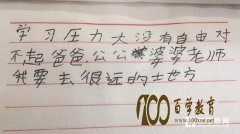 学习压力大没有自由对
不起爸爸.公公婆婆老师
我要去很远的土也方
100百学教育
www.100xue.net